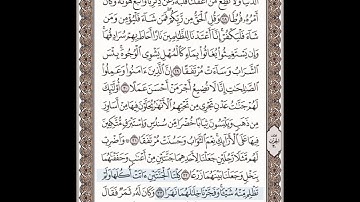 الدنيا ولا تطع من أغفلنا قلبه عن ذكرنا واتبع هواه وكان
أمره فرطا ٢٨ وقل الحق من ربكم فمن شاء فليؤمن ومن
شاء فليكفر إنا أعتدنا للظالمين نارا أحاط بهم سرادقها
وإن يستغيثوا يغاثوا بماء كالمهل يشوي الوجوه بئس
الشراب وساءت مرتفقا ٢٩ إن الذين ءامنوا وعملوا
الصالحات إنا لا نضيع أجر من أحسن عملا ٣٠ أولئك
لهم جنات عدن تجري من تحتهم الأنهار يحلون فيها من أساور
من ذهب ويلبسون ثيابا خضرا من سندس وإستبرق متكئين
فيها على الأرائك نعم الثواب وحسنت مرتفقا ٣١ واضرب
لهم مثلا رجلين جعلنا لأحدهما جنتين من أعناب وحففناهما
بنخل وجعلنا بينهما زرعا ٣٢ كلتا الجنتين ءاتت أكلها ولم
تظلم منه شيئا وفجرنا خلالهما نهرا ٣٣ وكان له ثمر فقال